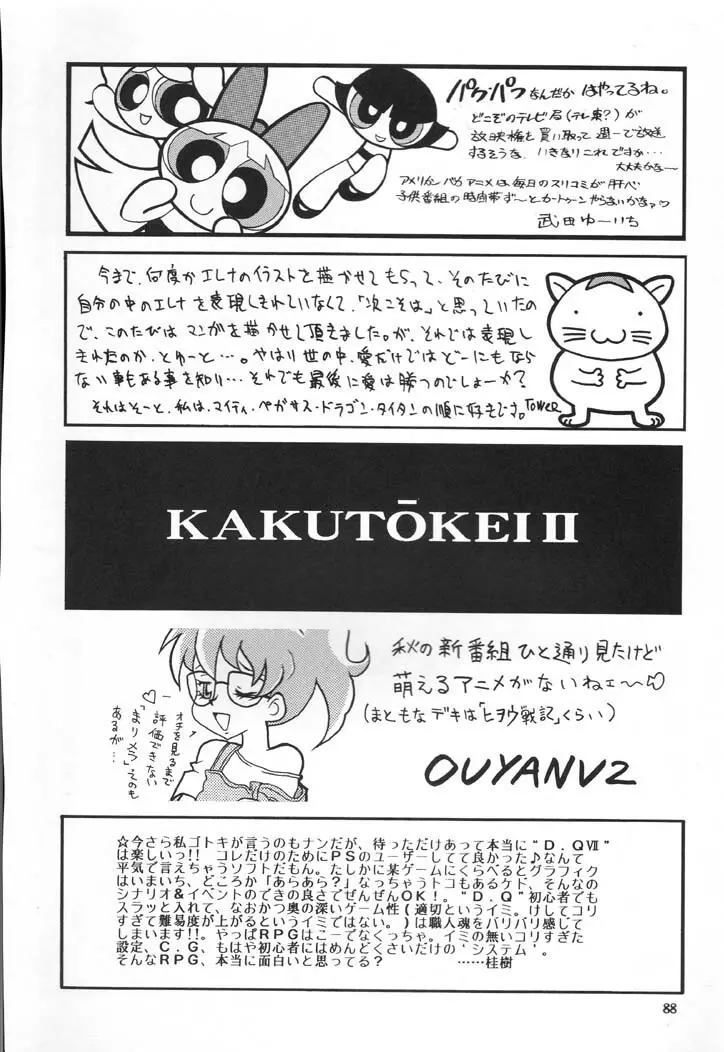 パワ・パフ なんだか はやってるね。
どこぞのテレビ局(テレ東?)が
放映権を買い取って週一で放送
するそうな。いきなりこれですか…
大丈夫かな〜
アメリカンバカアニメは毎日のスリコミが肝心
子供番組の時間帯ずーとカートゥーンやらまいか
武田ゆーいち
今まで、何度かエレナのイラストを描かせてもらって、そのたびに
自分の中のエレナを表現しきれていなくて、「次こそは。」と思っていたの
で、このたびはマンガを描かせて頂きました。が、それでは表現し
きれたのか、とゆーと…。やはり世の中、愛だけではどーにもなら
ない事もある事を知り…それでも最後に愛は勝つのでしょーか?
それはそーと、私は、マイティ・ペガサス・ドラゴン・タイタンの順に好きです。TOWER
KAKUTŌKEI II
秋の新番組ひと通り見たけど
萌えるアニメがないねェ〜♡
(まともなデキは「ヒヲウ戦記」くらい)
オチを見るまで
評価できない
♡「まりメラ」そのも
あるが…
OUYANV2
☆今さら私ゴトキが言うのもナンだが、待っただけあって本当に“D.QⅦ”
は楽しいっ!! コレだけのためにPSのユーザーしてて良かった♪なんて
平気で言えちゃうソフトだもん。たしかに某ゲームにくらべるとグラフィク
はいまいち、どころか「あらあら?」なっちゃうトコもあるケド、そんなの
シナリオ&イベントのできの良さでぜんぜんOK!。“D.Q”初心者でも
スラッと入れて、なおかつ奥の深いゲーム性(適切というイミ。けしてコリ
すぎて難易度が上がるというイミではない。)は職人魂をバリバリ感じて
しまいます!!。やっぱRPGはこーでなくっちゃ。イミの無いコリすぎた
設定、C.G、もはや初心者にはめんどくさいだけの‘システム’。
そんなRPG、本当に面白いと思ってる? ……桂樹
88